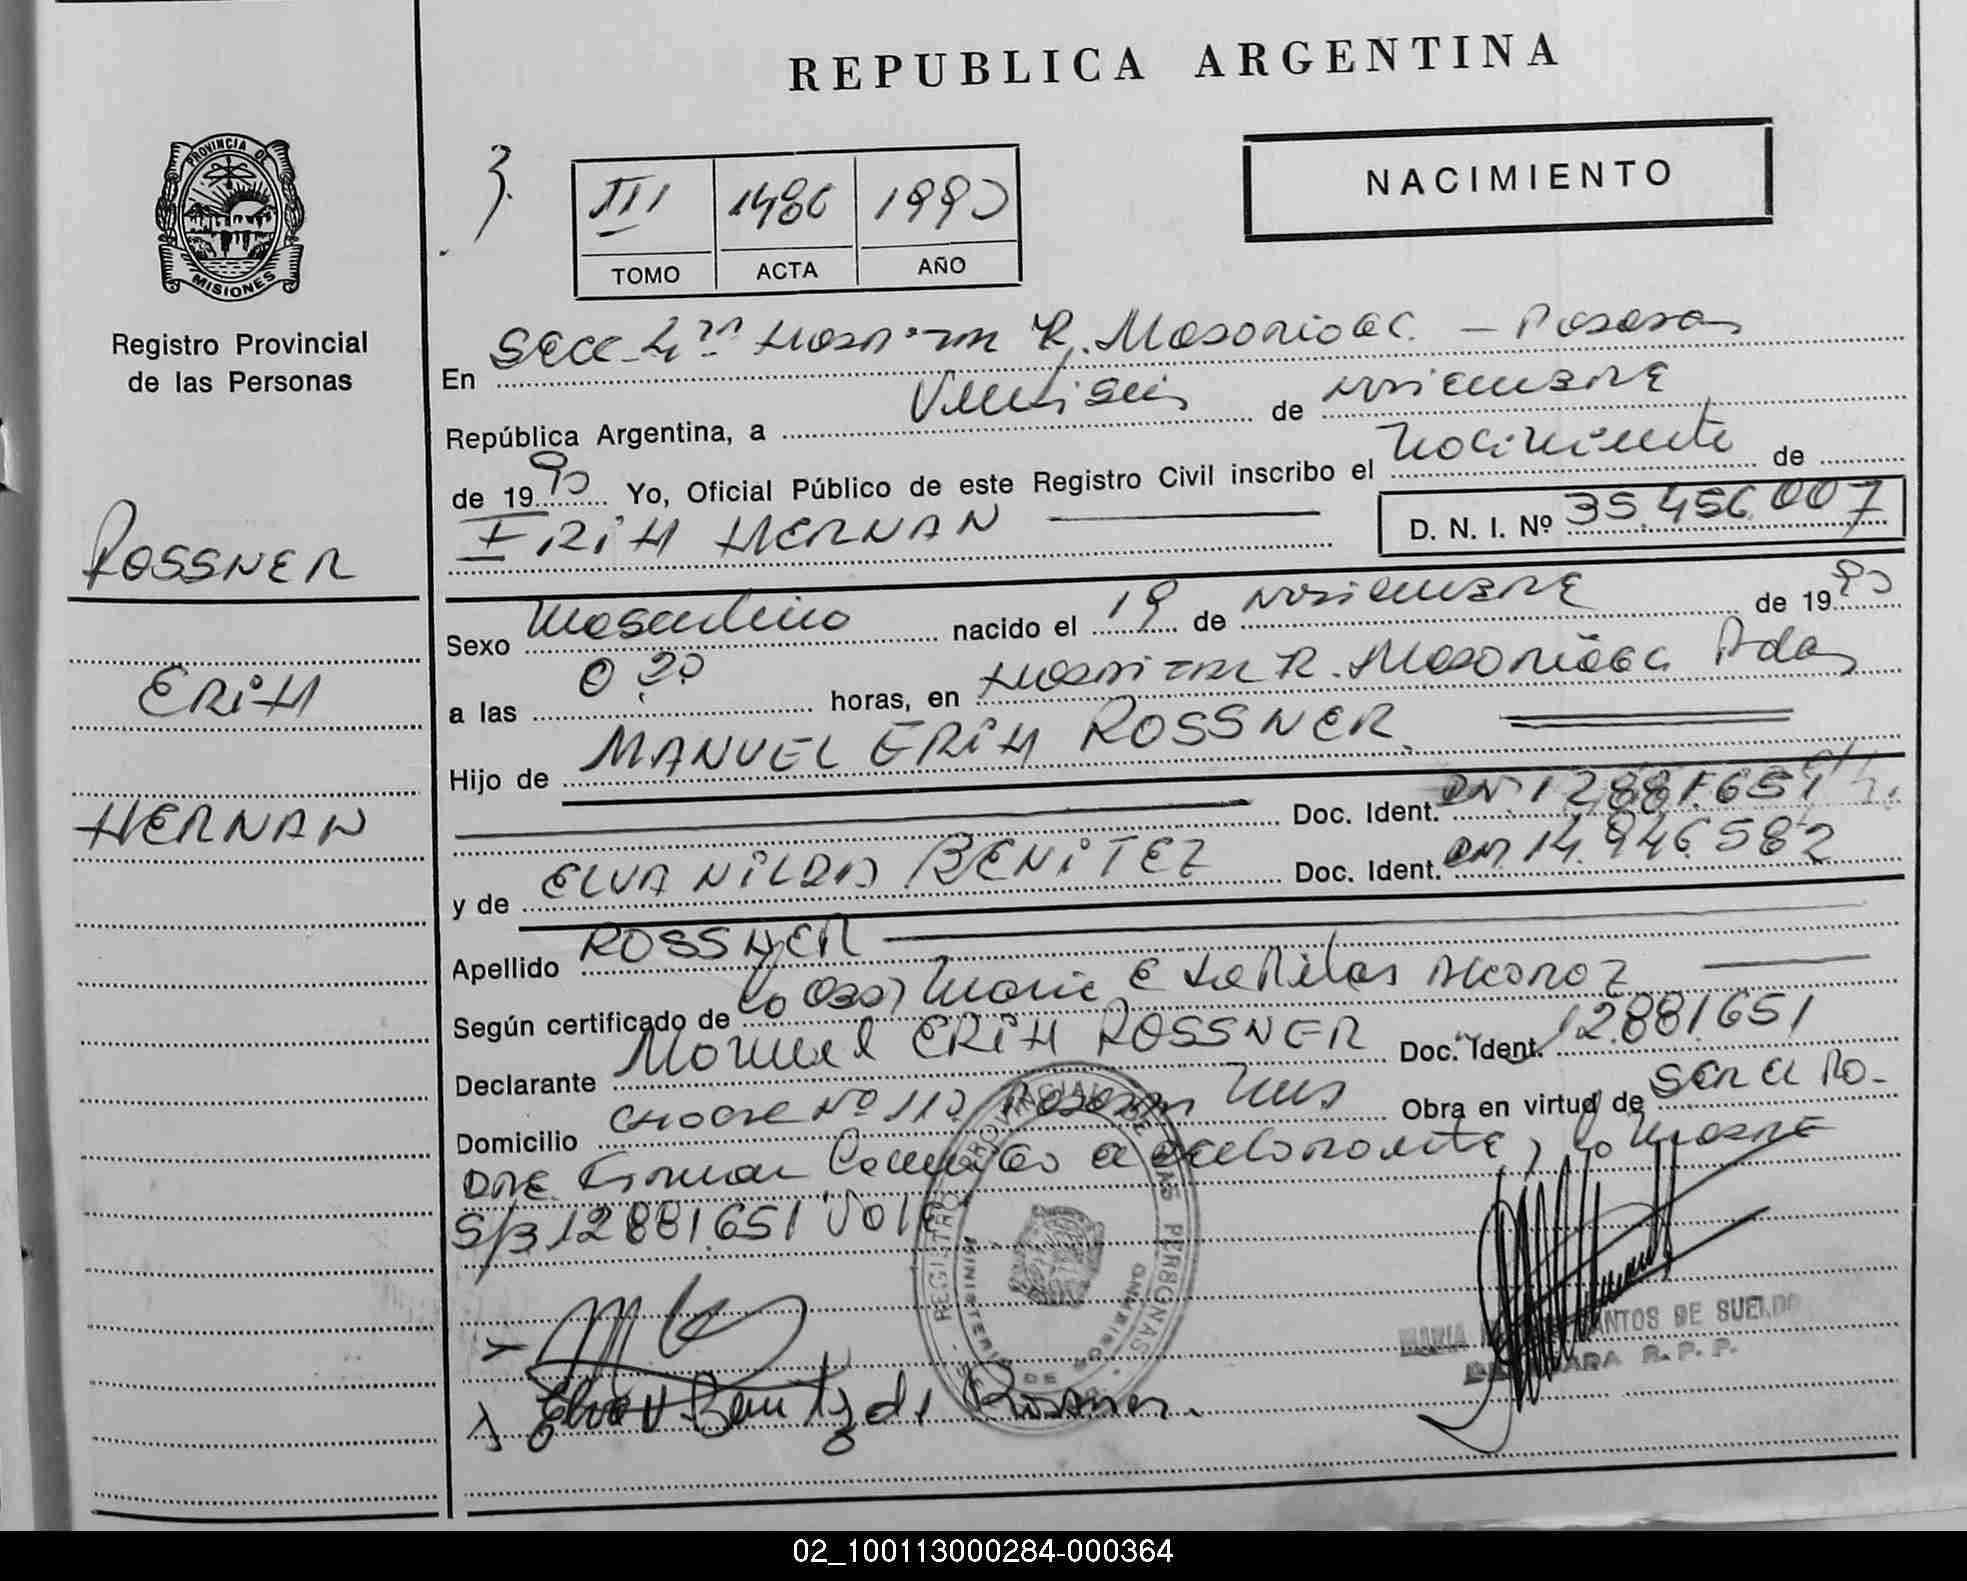 REPUBLICA ARGENTINA
NACIMIENTO
PROVINCIA DE
MISIONES
Registro Provincial
de las Personas
ROSSNER
ERIH
HERNAN
3.
III 1486 1990
TOMO ACTA AÑO
En Secc 4ta Hospital R. Madariaga - Posadas
República Argentina, a Veintiseis de noviembre
de 1990 Yo, Oficial Público de este Registro Civil inscribo el nacimiento de
ERIH HERNAN
D. N. I. Nº 35.456.007
Sexo masculino nacido el 19 de noviembre de 1990
a las 0 horas, en Hospital R. Madariaga Pdas
Hijo de MANUEL ERIH ROSSNER
Doc. Ident. DNI 12.881.651
y de ELVA NILDA BENITEZ Doc. Ident. DNI 14.946.582
Apellido ROSSNER
Según certificado de la Obst Maria E de
Declarante Manuel ERIH ROSSNER Doc. Ident. 12.881.651
Domicilio Nº 110 Posadas Mnes Obra en virtud de ser el Pa-
dre Firman la madre
S/B 12881651 Vale
REGISTRO PROVINCIAL DE LAS PERSONAS
MINISTERIO DE GOBIERNO
Elva N Benitez de Rossner.
MARIA SANTOS DE SUELDO
R. P. P.
02_100113000284-000364